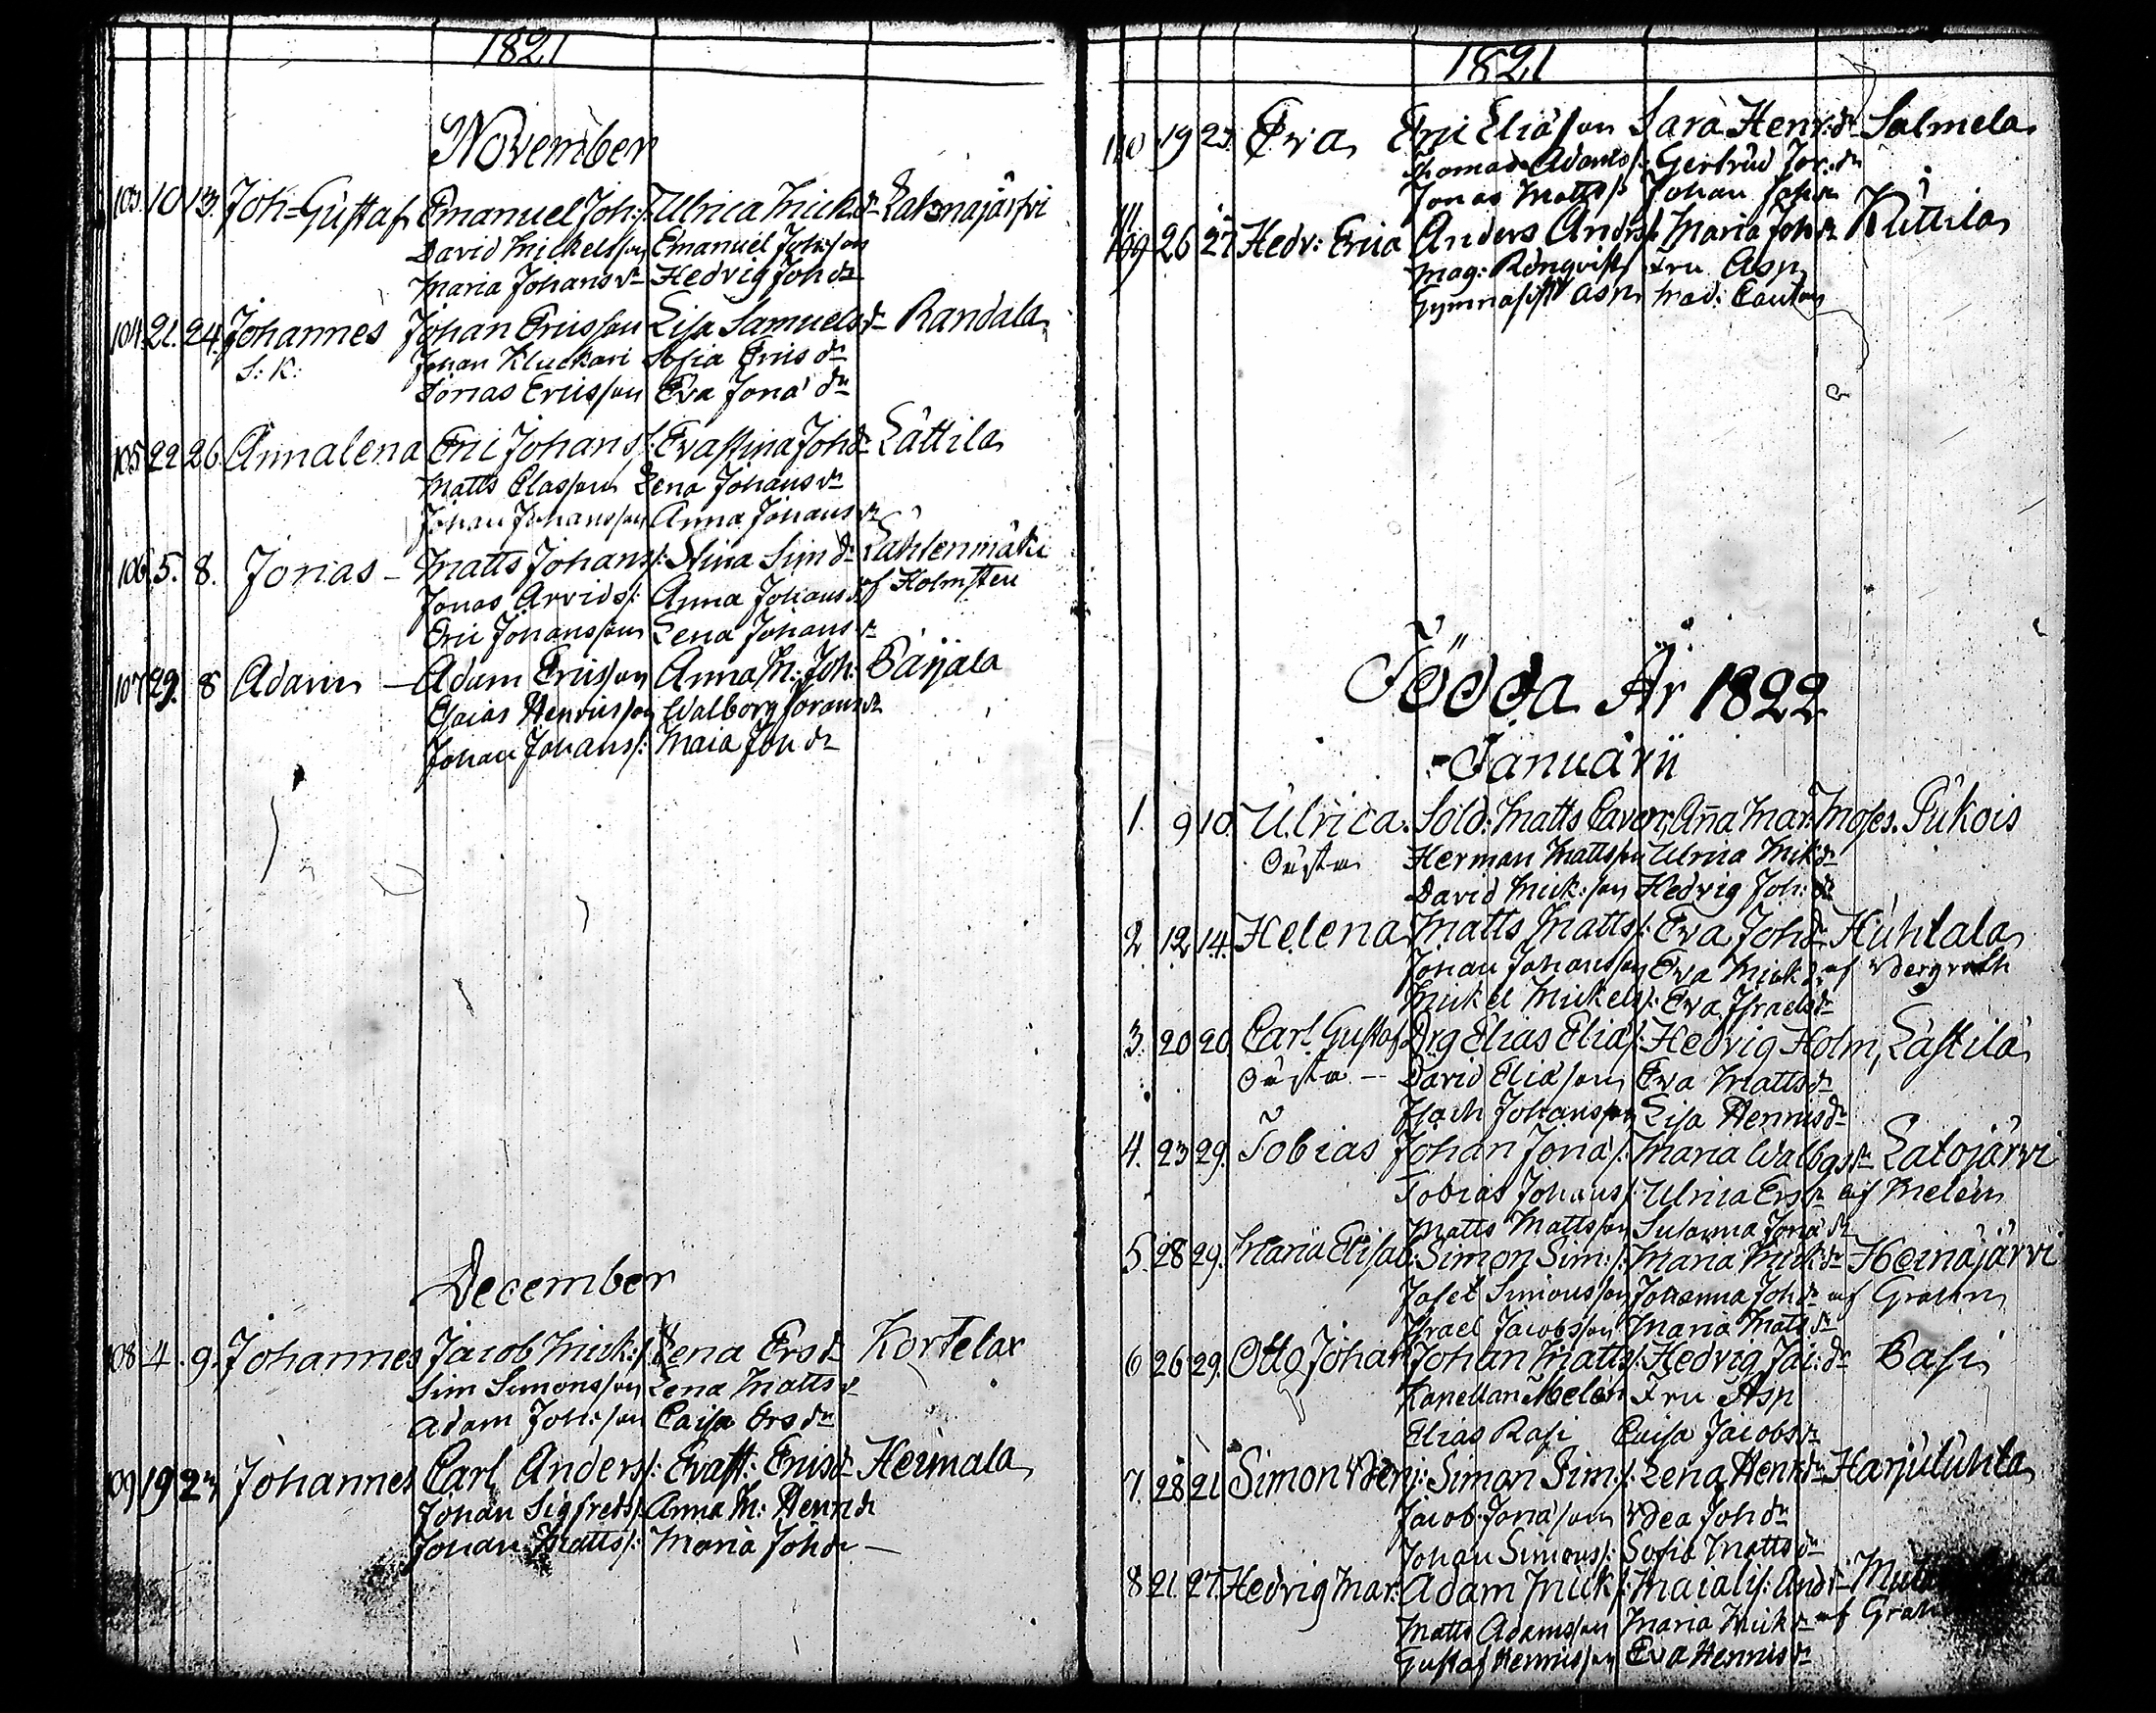 1821
November
103. 10 13. Joh-Gustaf Emanuel Joh:s: Ulrica Mick dr
David Mickelsson Emanuel Johsson
Maria Johans dr Hedvig Joh dr
104. 21. 24. Johannes Johan Ericsson Lisa Samuels dr Randala
S: K: Johan Kluckari Sofia Erics dr
Jonas Ericsson Eva Jona dr
105 22 26 Annalena Eric Johans s: Evastina Joh dr Lättila
Matts Classon Lena Johans dr
Johan Johansson Anna Johans dr
106. 5. 8. Jonas – Matts Johans s: Stina Sim dr Lähtenmäki
Jonas Arvids s: Anna Johans dr af Holmsten
Eric Johansson Lena Johans dr
107 29. 8 Adam – Adam Ericsson Anna M: Joh: Bärjala
Esaias Henricsson Walborg Johans dr
Johan Johans s: Maia Joh dr
December
108 4. 9. Johannes Jacob Mick: s: Lena Ers dr Kortela
Sim Simonsson Lena Matts dr
Adam Joh:son Caisa Ers dr
109 19 Johannes Carl Anders s: Evast: Erics dr Heimala
Johan Sigfreds s: Anna M: Henr dr
Johan Matts s: Maria Joh dr –
1821
110 19 23. Eva Eric Eliasson Sara Henr: dr Salmela
Thomas Adams s: Gertrud Jor: dr
Jonas Matts s: Johan Joh dr
111
26 27 Hedv: Erica Anders Anders s: Maria Joh dr Kuttila
Mag: Rönqvist Fru Asp
Gymnasist Asp Mad:
Födda År 1822
Januarii
1. 9 10. Ulrica. Sold: Matts Caven, Anna Mar: Moses. Pukois
Oäkta Herman Mattsson Ulrica Mick dr
David Mick:son Hedvig Joh: dr
2 12 14. Helena Matts Matts s: Eva Joh dr Huhtala
Johan Johansson Eva Mick dr af Bergroth
Mickel Mickels s: Eva Israels dr
3. 20 20 Carl Gustaf Drg Elias Elias s: Hedvig Holm, Lastila
Oäkta – David Eliasson Eva Matts dr
Isach Johansson Lisa Henrics dr
4. 23 29. Tobias Johan Jona s: Maria Walbgs dr Latojärvi
Tobias Johans s: Ulrica Ers dr af Melen
Matts Mattsson Susanna Jona dr
5. 28 29. Maria Elisab: Simon Sim: s: Maria Mick dr Heinäjärvi
Josef Simonsson Johanna Joh dr af Grahn
Israel Jacobsson Maria Matts dr
6 26 29. Otto Johan Johan Matts s: Hedvig Jac: dr Basi
Kapellan Melen Fru Asp
Elias Rasi Caisa Jacobs dr
7. 28 21 Simon Benj: Simon Sim s: Lena Henr dr Harjuluhta
Jacob Jonasson Bea Joh dr
Johan Simons s: Sofia Matts dr
8 21. 27. Hedvig Mar: Adam Mick s: Maialis: And dr
Matts Adamsson Maria Mick dr af Grahn
Gustaf Henricsson Eva Henrics dr